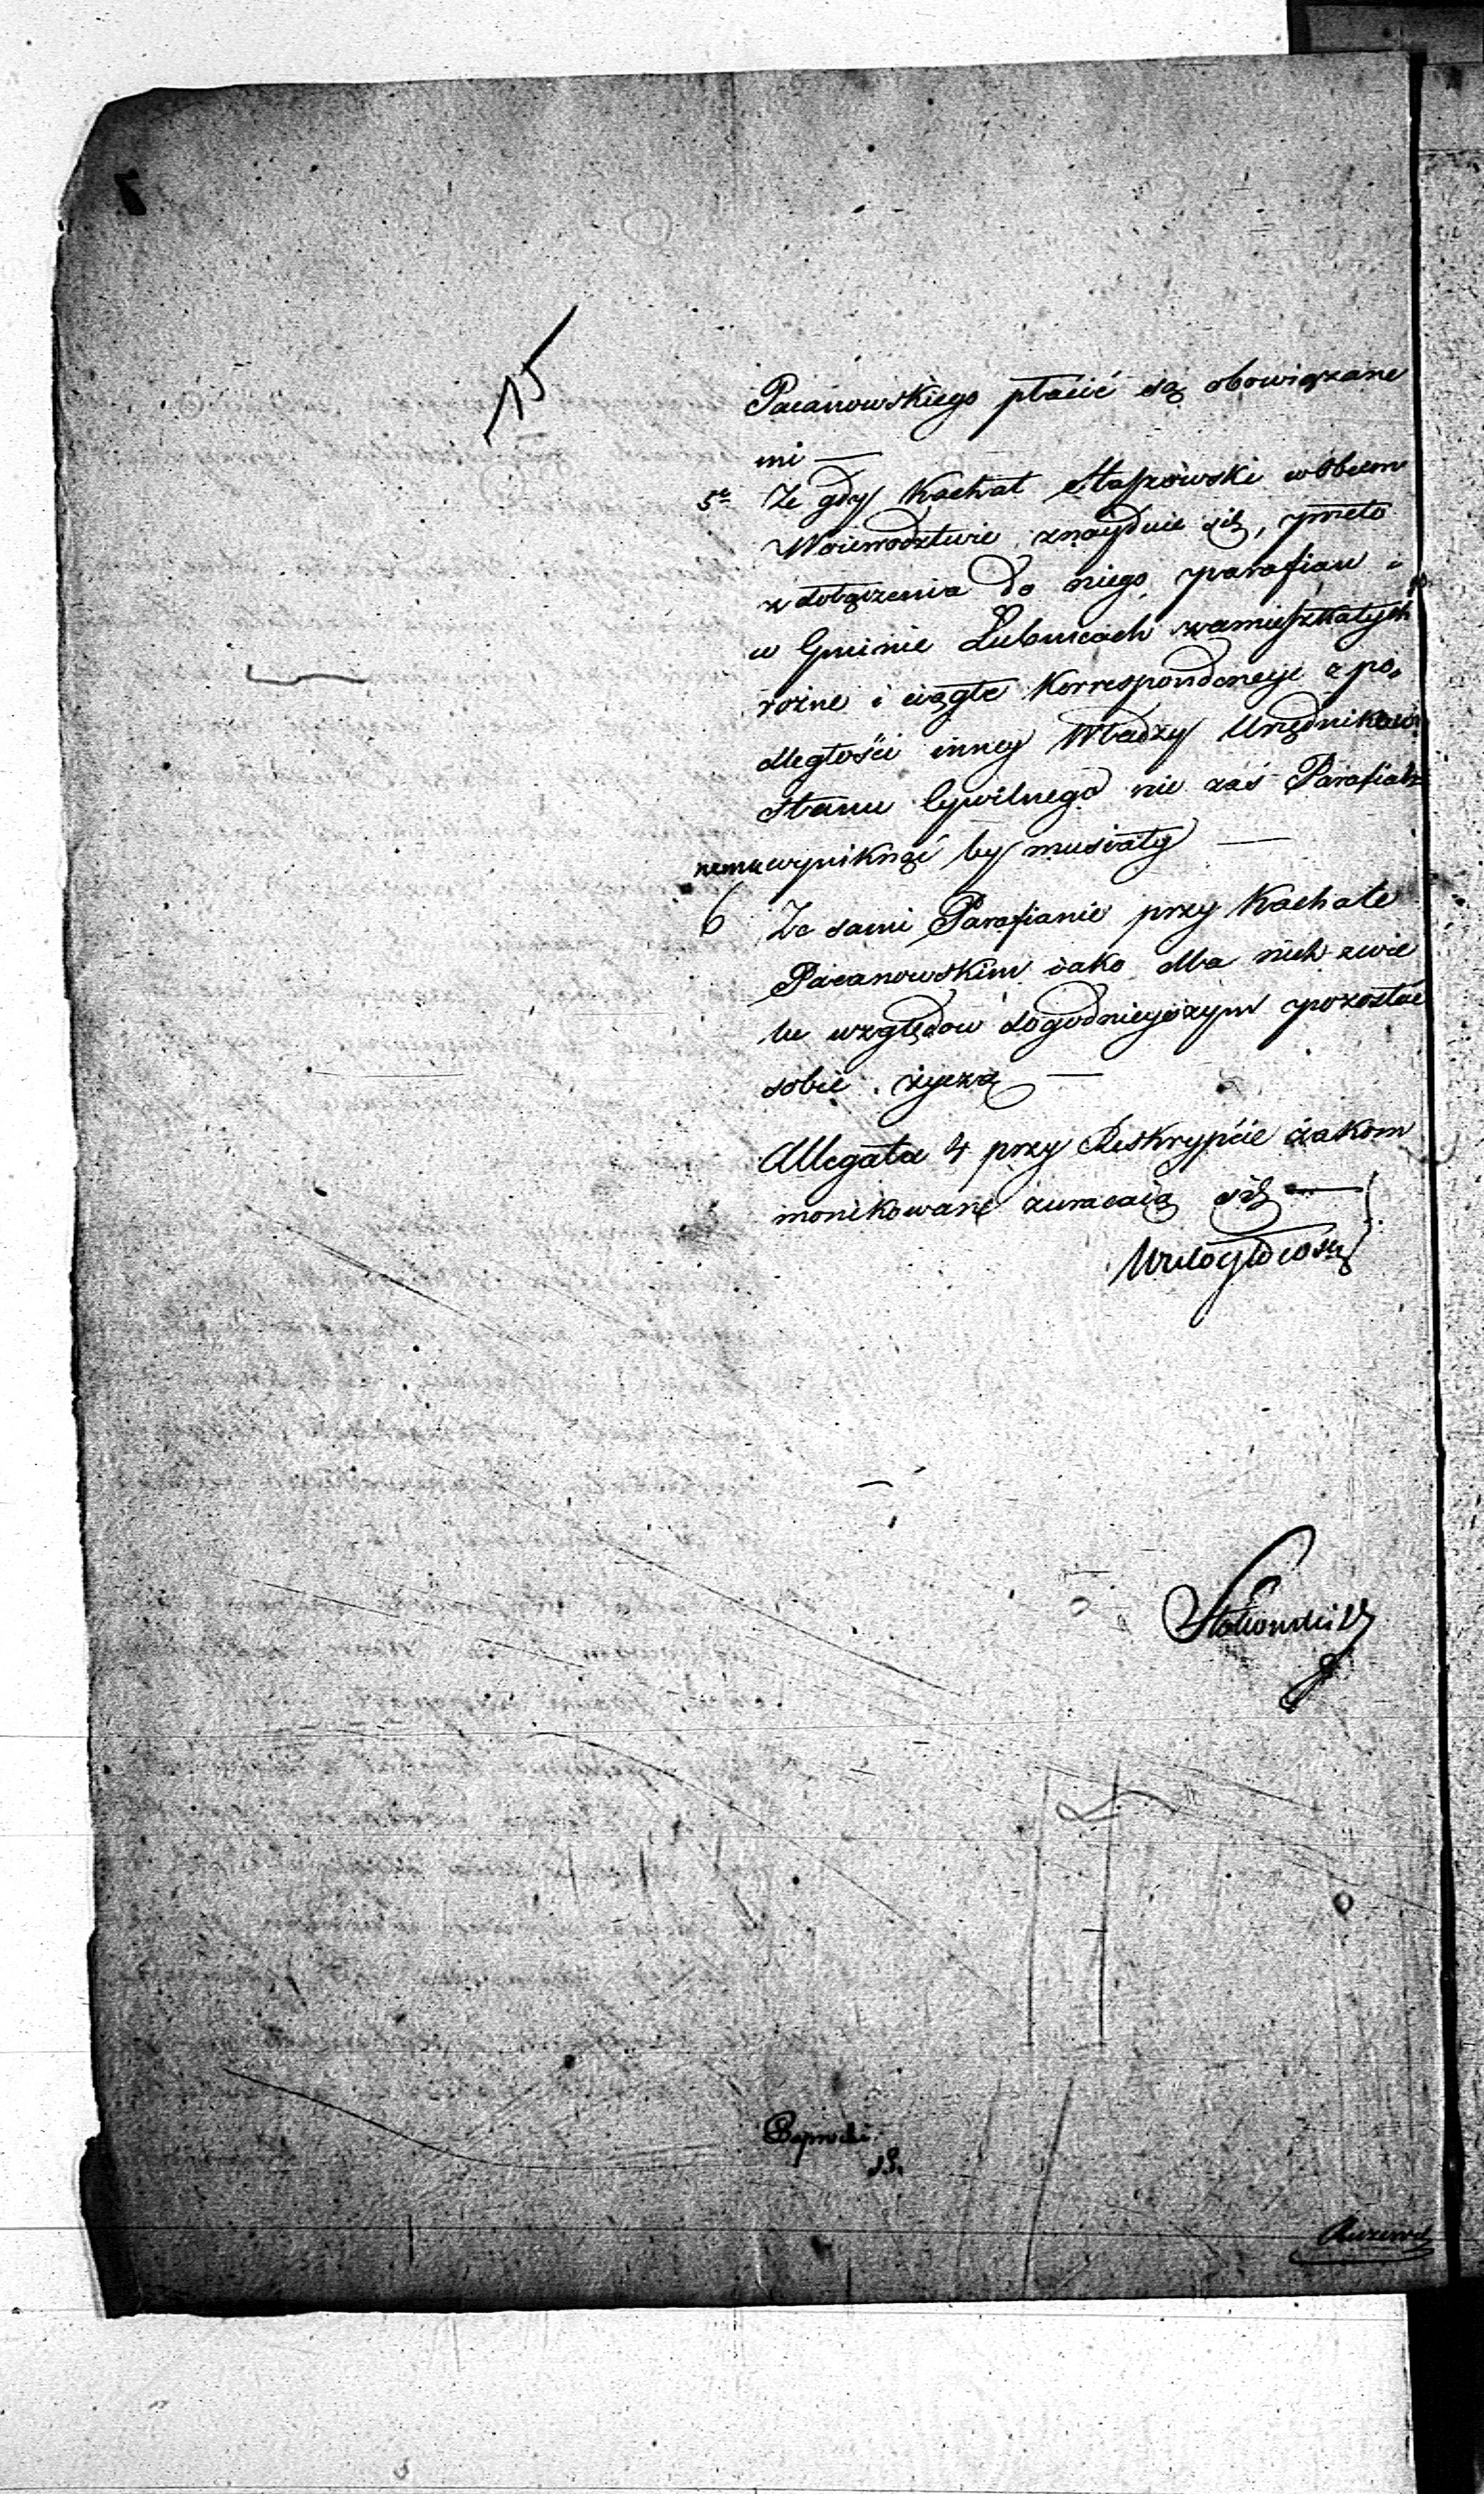 15
Pacanowskiego płacić są obowiązane
mi —
5e Ze gdy Kachał Staszowski w Obcem
Woiewodztwie znayduie się, przeto
z dołączenia do niego parafian
w Gminie Łubnicach zamieszkałych
rożne i ciągłe Korrespondencye z po
dległości inney Władzy Urzędnikow
Stanu Cywilnego nie zaś Parafial
nemu wyniknąć by musiały —
6 Ze sami Parafianie przy Kachale
Pacanowskim iako dla nich z wie
lu względow dogodnieyszym pozostać
sobie życzą —
Allegata 4 przy Reskrypcie zakom
monikowane zwracaią się —
Wielogłowski